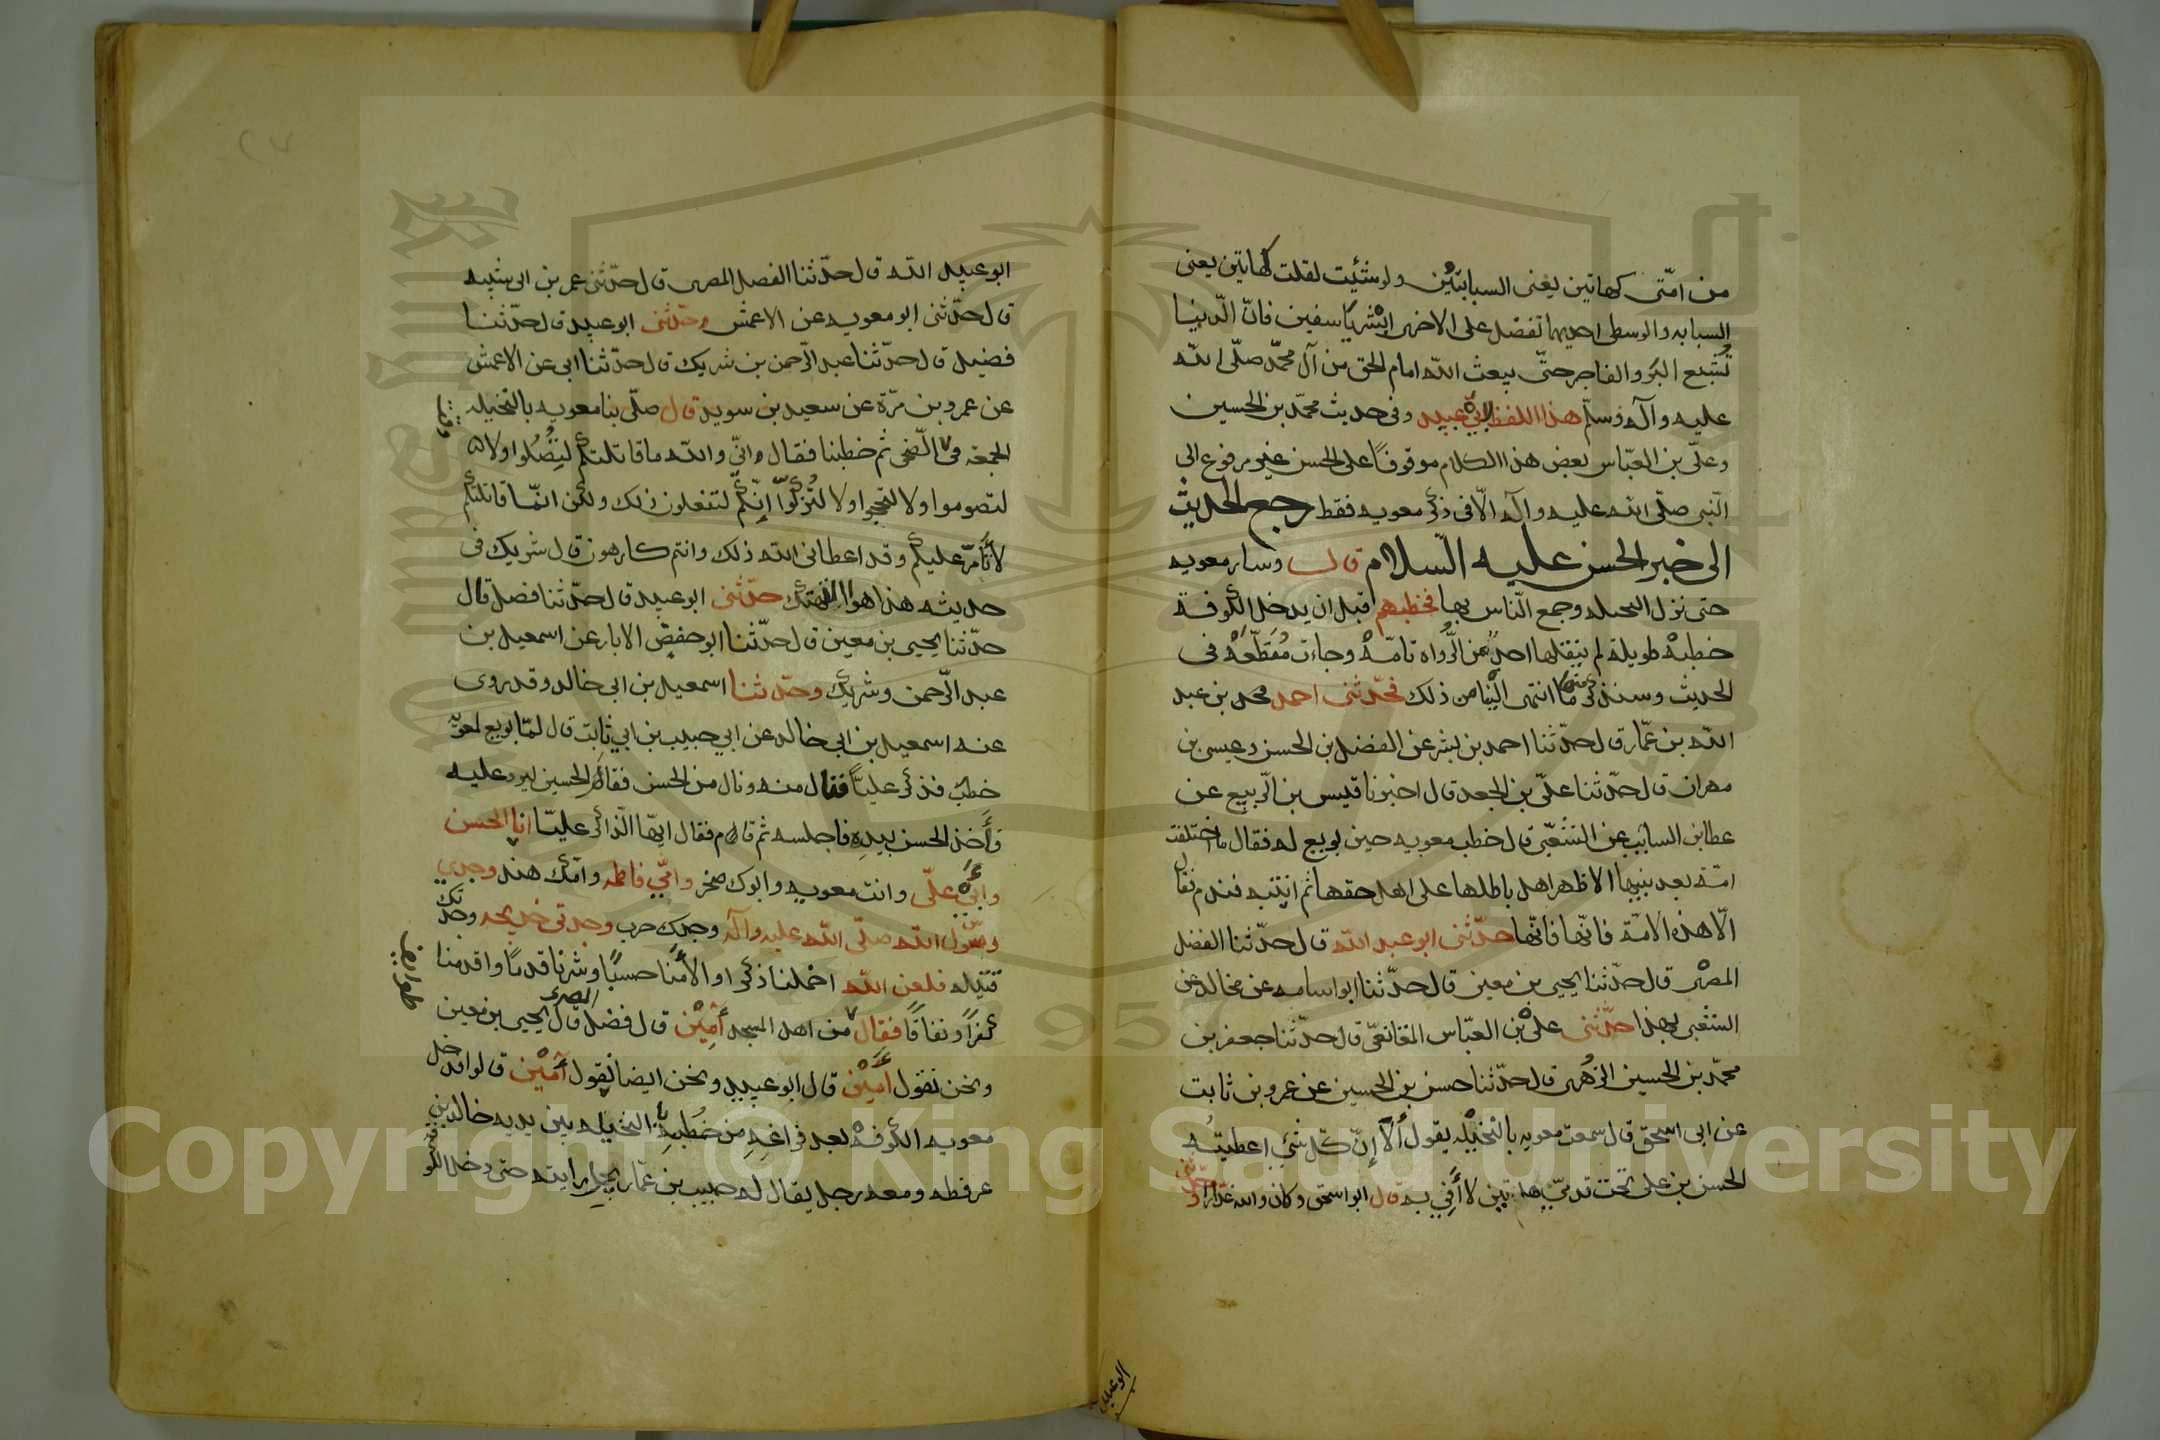 من امّتى كهاتين يعنى السبابتين ولو شئت لقلت كهاتين يعنى
السبابه والوسطى احديهما تفضل على الاخرى ابشر يا سفين فانّ الدّنيا
تسع البرّ والفاجر حتّى يبعث الله امام الحق من آل محمّد صلّى الله
عليه وآله وسلّم هذا اللفظ لابي عبيد وفى حديث محمّد بن الحسين
وعلىّ بن العبّاس بعض هذا الكلام موقوفًا على الحسن غير مرفوع الى
النّبى صلّى الله عليه وآله الّا فى ذكر معويه فقط رجع الحديث
الى خبر الحسن عليه السّلام قال وسار معويه
حتى نزل النخيله وجمع النّاس بها فخطبهم قبل ان يدخل الكوفة
خطبة طويلة لم ينقلها احد من الرّواه تامّة وجاءت مقطّعة فى
الحديث وسنذكر ما انتهى الينا من ذلك فحّدثنى احمد محمد بن عبد
الله بن عمّار قال حدّثنا احمد بن بشر عن الفضل بن الحسن وعيسى بن
مهران قال حدّثنا علىّ بن الجعد قال اخبرنا قيس بن الرّبيع عن
عطا بن السايب عن الشعبّى قال خطب معويه حين بويع له فقال ما اختلفت
امّة بعد نبيها الا ظهر اهل باطلها على اهل حقها ثم انتبه فندم فقال
الّا هذه الامّة فانّها فانّها حدّثنى ابو عبد الله قال حدّثنا الفضل
المصرى قال حدّثنا يحيى بن معين قال حدّثنا ابو اسامه عن مجالد عن
الشعبى بهذا حدّثنى علىّ بن العبّاس المقانعىّ قال حدّثنا جعفر بن
محمّد بن الحسين الزهرى قال حدّثنا حسن بن الحسين عن عمرو بن ثابت
عن ابى اسحق قال سمعت معويه بالنخيله يقول ألا إنّ كلّ شئ اعطيته
الحسن بن على تحت قدمىّ هاتين لا أفي به قال ابو اسحق وكان والله غدّارا وحدّثنى
ابو عبيد
ابو عبيد الله قال حدّثنا الفضل المصرى قال حدّثنى عمر بن ابى شيبه
قال حدّثنى ابو معويه عن الاعمش وحدّثنى ابو عبيد قال حدّثنا
فضيل قال حدّثنا عبد الرّحمن بن شريك قال حدّثنا ابى عن الاعمش
عن عمرو بن مرّة عن سعيد بن سويد قال صلّى بنا معويه بالنخيله
الجمعة فى الضّحى ثم خطبنا فقال وانّي والله ما قاتلتكم لتصلوا ولا
لتصوموا ولا لتحجوا ولا لتزكّوا إنّكم لتفعلون ذلك ولكن انّما قاتلتكم
لأتأمّر عليكم وقد اعطانى الله ذلك وانتم كارهون قال شريك فى
حديثه هذا هو التهتك حدّثنى ابو عبيد قال حدّثنا فضل قال
حدّثنا يحيى بن معين قال حدّثنا ابو حفص الابار عن اسمعيل بن
عبد الرّحمن وشريك وحدّثنا اسمعيل بن ابى خالد وقد روى
عنه اسمعيل بن ابى خالد عن ابي حبيب بن ابي ثابت قال لمّا بويع لمعويه
خطب فذكر عليّاً فقال منه ونال من الحسن فقام الحسين ليرد عليه
فأخذ الحسن بيده فاجلسه ثم قام فقال ايّها الذّاكر عليّا انا الحسن
وأبى علىّ وانت معويه وابوك صخر وامّي فاطمه وامّك هند وجدي
رسول الله صلّى الله عليه وآله وجدك حرب وجدتى خديجه وجدتك
قتيله فلعن الله اخملنا ذكرا والأمنا حسبًا وشرنا قدمًا واقدمنا
كفرًا ونفاقًا فقال من اهل المسجد أمين قال فضل المصرى قال يحيى بن معين
ونحن نقول أمين قال ابو عبيد ونحن ايضا نقول أمين قالوا دخل
معويه الكوفة بعد فراغه من خطبته النخيله بين يديه خالد بن
عرفطه ومعه رجل يقال له حبيب بن عمّار يحمل رايته حتى دخل الكو